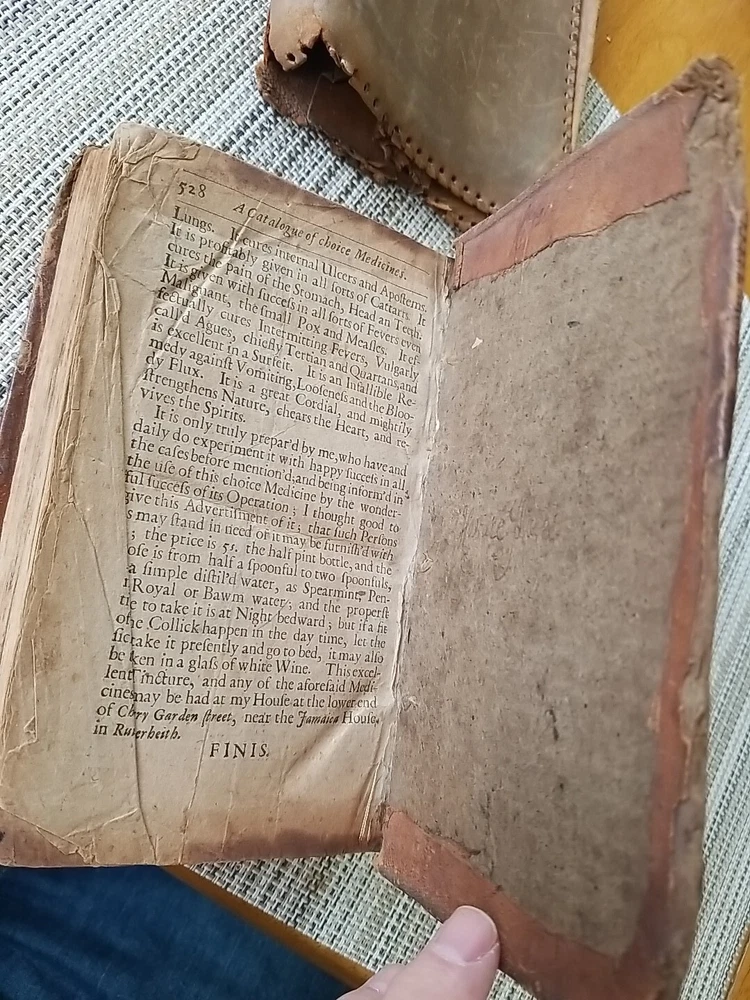 528
A Catalogue of choice Medicines.
Lungs. It cures internal Ulcers and Apostems.
It is profitably given in all sorts of Cattarrs. It
cures the pain of the Stomach, Head an Teeth.
It is given with success in all sorts of Fevers even
Malignant, the small Pox and Measles. It ef-
fectually cures Intermitting Fevers, Vulgarly
call'd Agues, chiefly Tertian and Quartans, and
is excellent in a Surfeit. It is an Infallible Re-
medy against Vomiting, Looseness and the Bloo-
dy Flux. It is a great Cordial, and mightily
strengthens Nature, chears the Heart, and re-
vives the Spirits.
It is only truly prepar'd by me, who have and
daily do experiment it with happy success in all
the cases before mention'd; and being inform'd in
the use of this choice Medicine by the wonder-
ful success of its Operation; I thought good to
give this Advertisment of it; that such Persons
s may stand in need of it may be furnish'd with
; the price is 5s. the half pint bottle, and the
ose is from half a spoonful to two spoonfuls,
a simple distil'd water, as Spearmint, Pen-
Royal or Bawm water; and the properst
to take it is at Night bedward; but if a fit
of the Collick happen in the day time, let the
take it presently and go to bed, it may also
be in a glass of white Wine. This excel-
lent Tincture, and any of the aforesaid Medi-
cines may be had at my House at the lower end
of Garden street, near the Jamaica House,
in
FINIS.